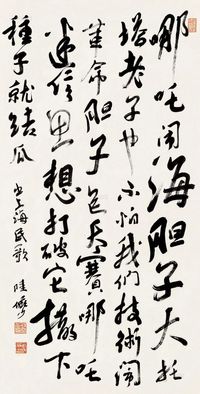 哪吒闹海胆子大托
塔老子也不怕我们技術闹
革命胆子包天賽哪吒
迷信思想打破它撒下
種子就结瓜
书上海民歌 陸儼少